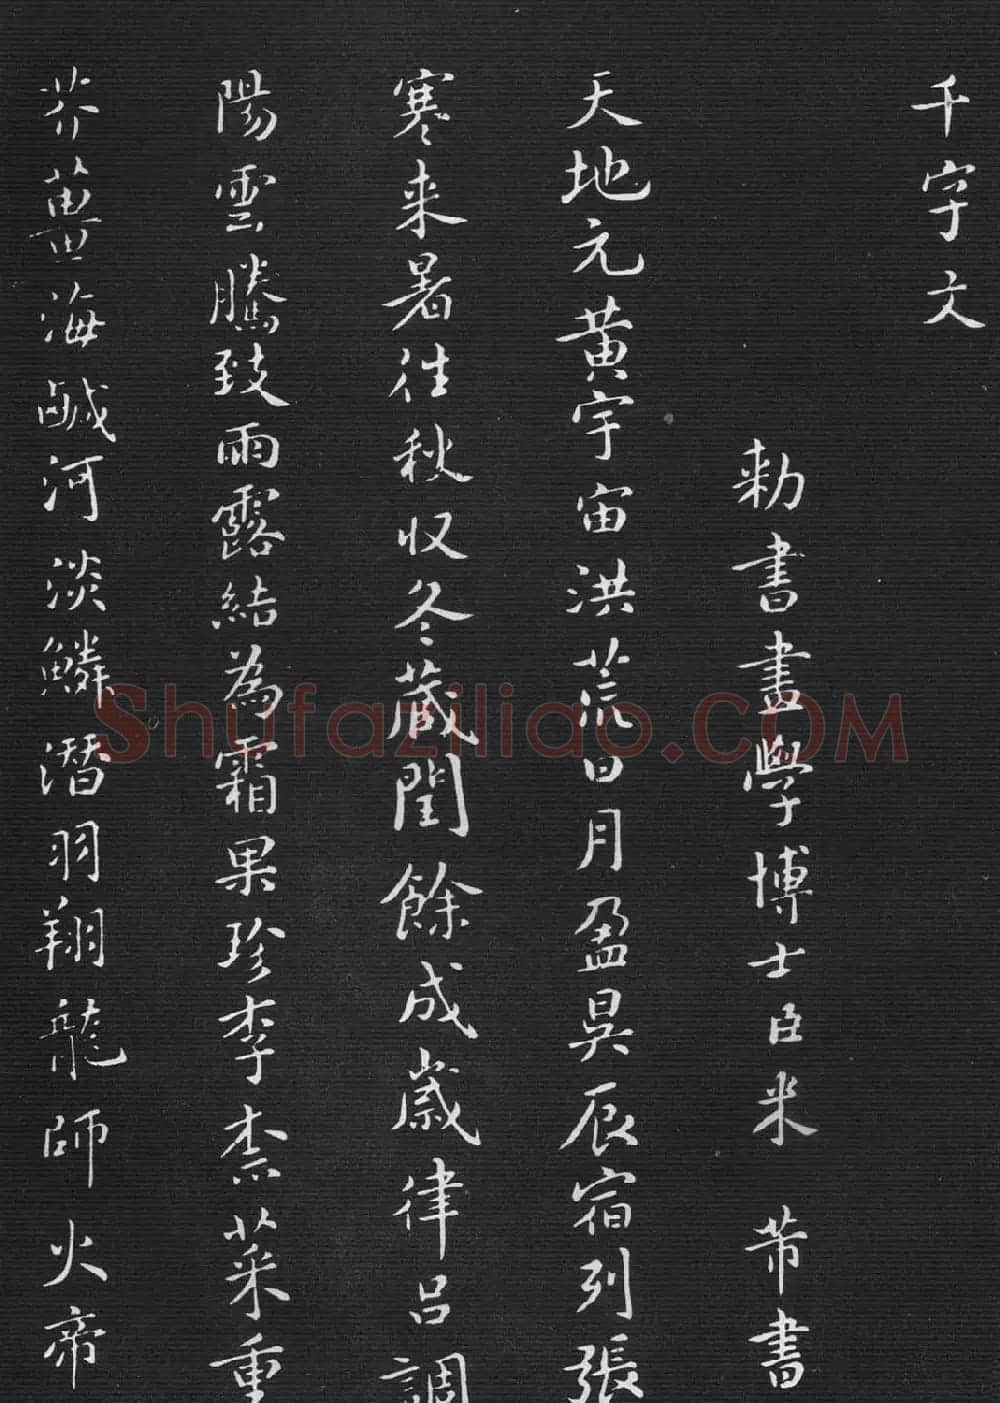 千字文
勅書畫學博士臣米 芾書
天地元黄宇宙洪荒日月盈昃辰宿列張
寒来暑往秋収冬蔵閏餘成歲律吕調
陽雲騰致雨露結為霜果珍李柰菜重
芥薑海鹹河淡鱗潛羽翔龍師火帝
Shufaziliao.COM